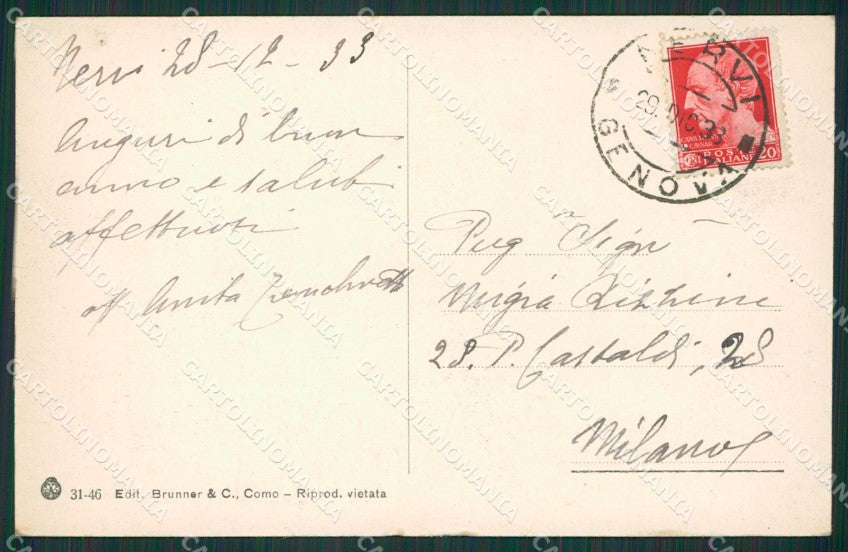 Nervi 28-12-33
Auguri di buon
anno e saluti
affettuosi
aff Anita
NERVI
29.DIC.33
GENOVA
CAESAR
POSTE
ITALIANE 20
Preg Sigr
Luigia
28. P. Castaldi, 28
Milano
31-46 Edit. Brunner & C., Como – Riprod. vietata
CARTOLINOMANIA